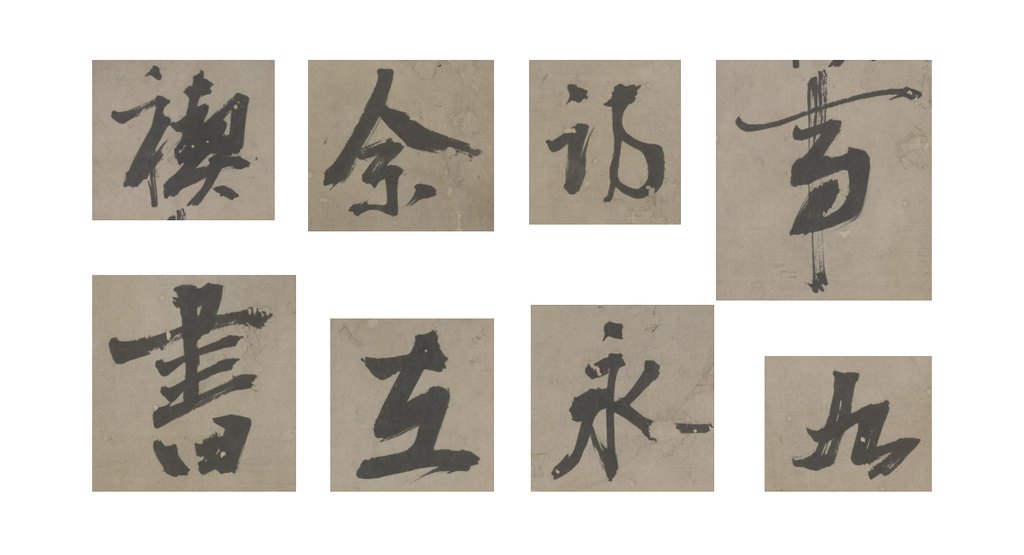 禊 余 初 事
書 五 永 九